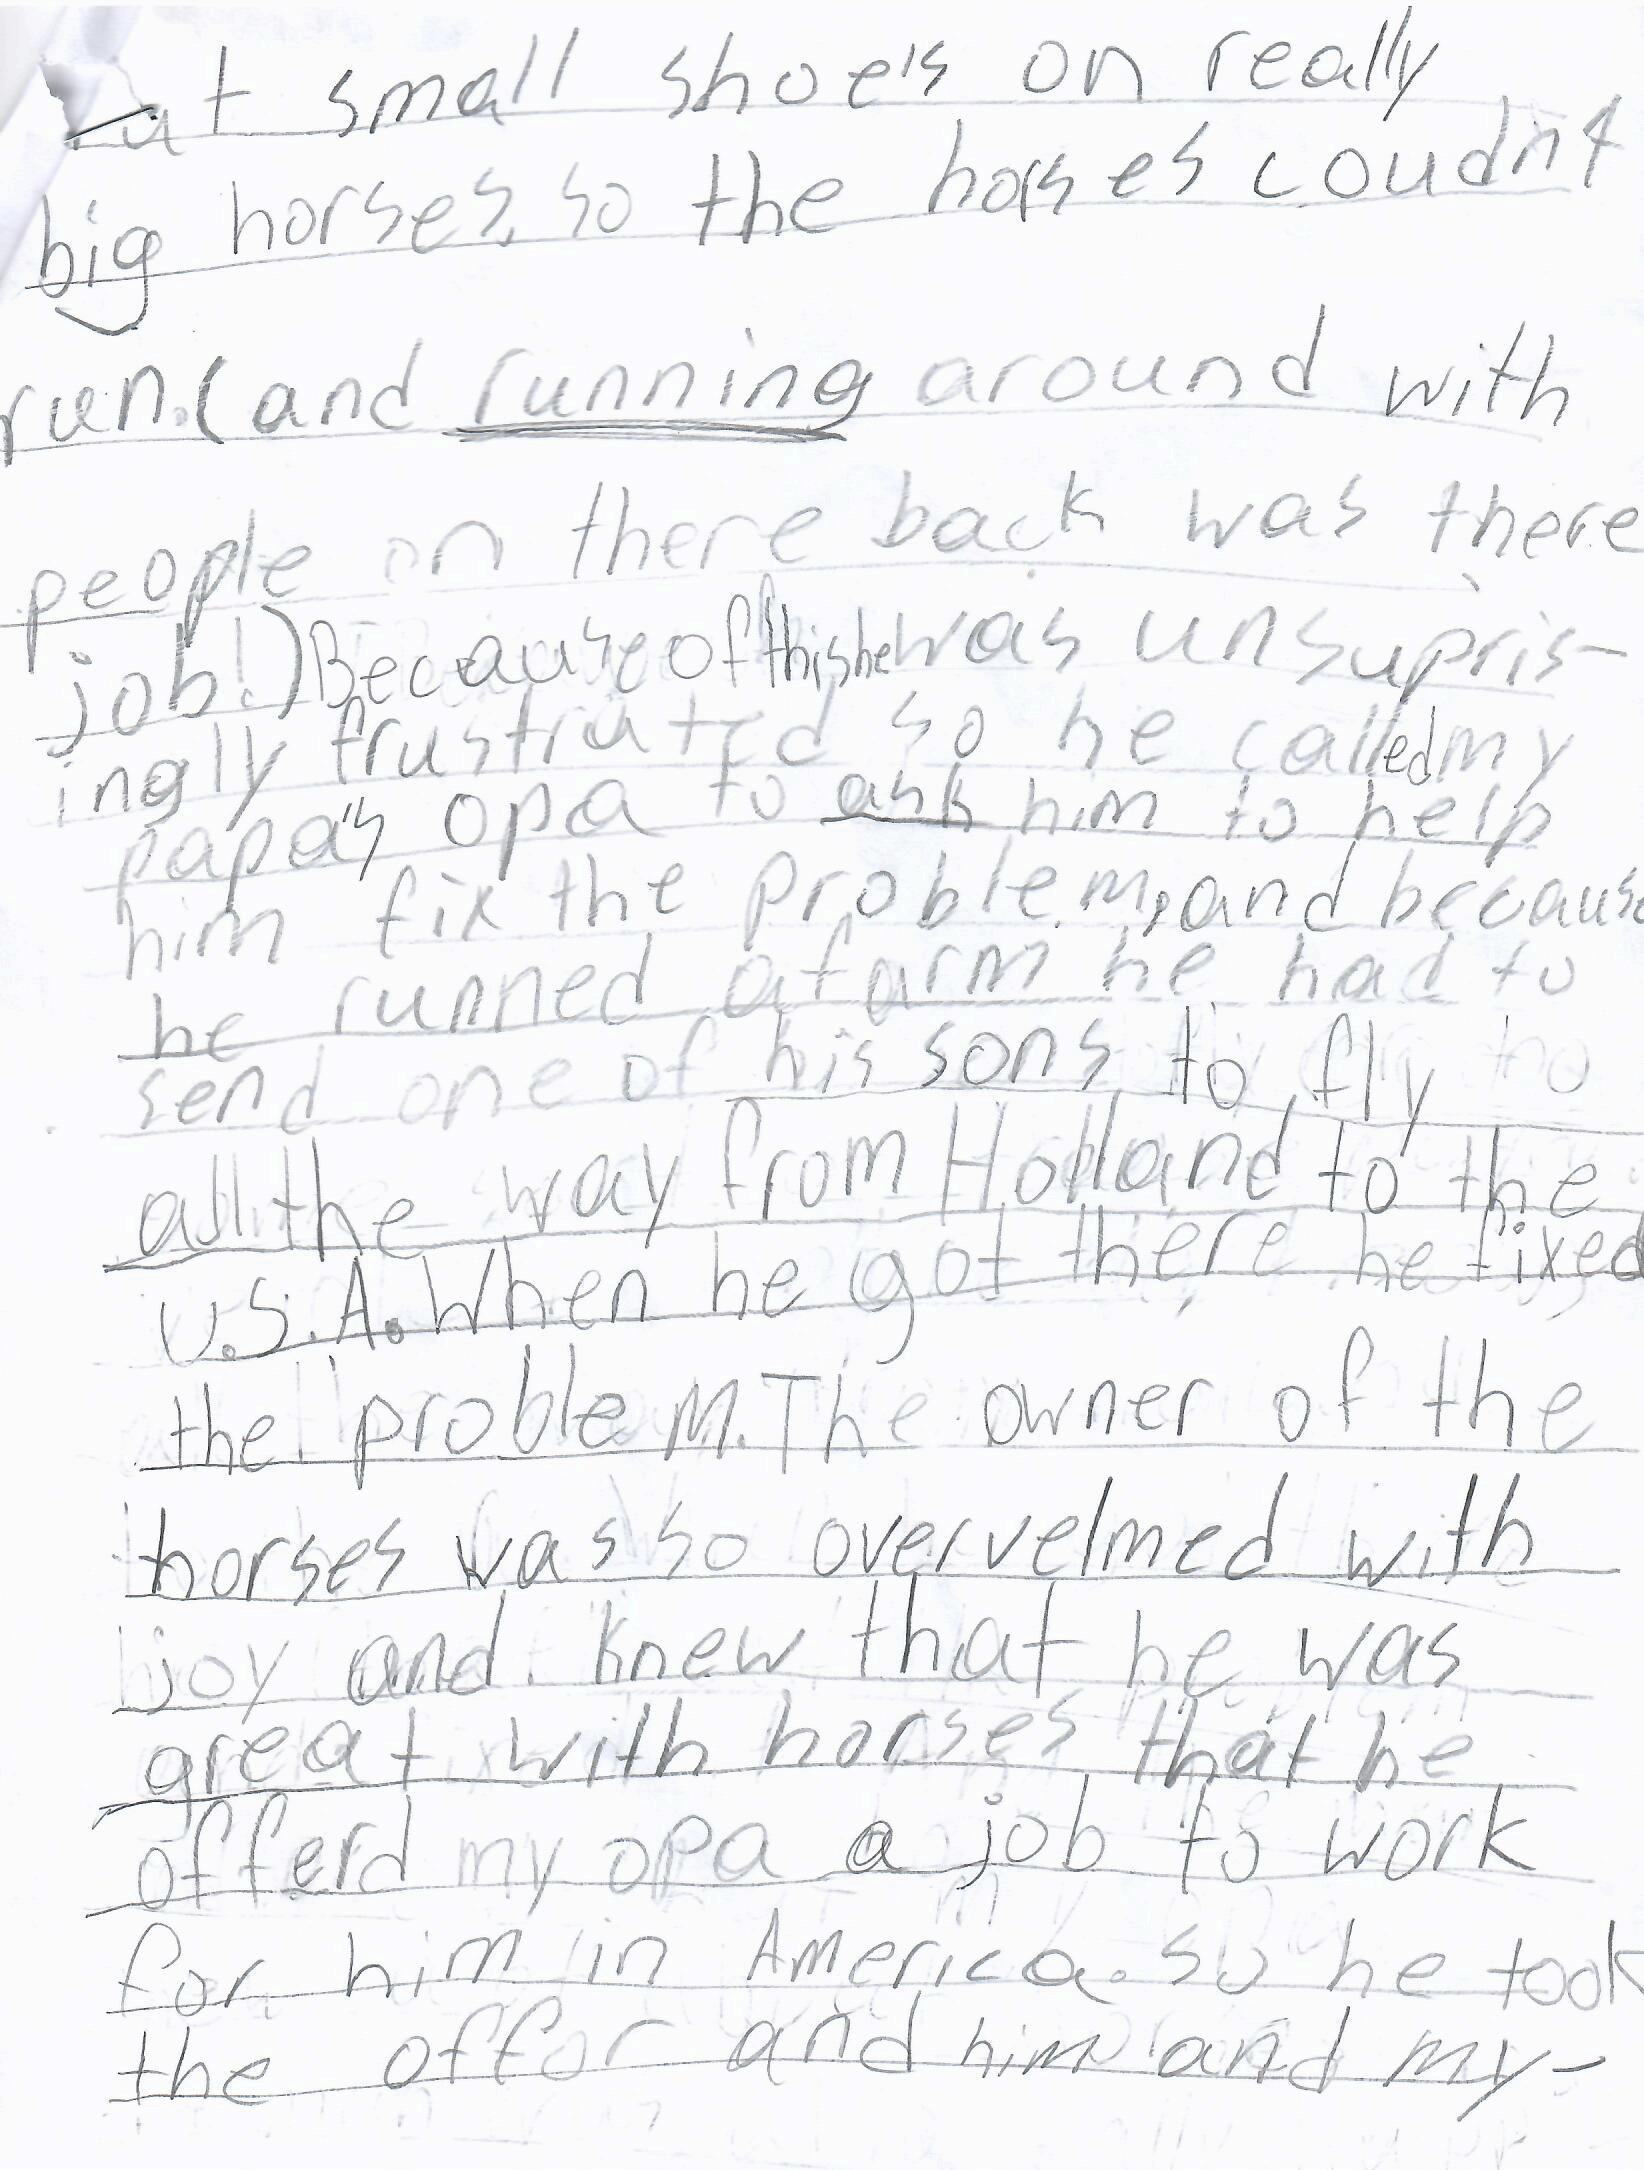 ut small shoe's on really
big horses, so the horses coudnt
run. (and running around with
people on there back was there
job!) Because of this he was unsupris-
ingly frustrated so he called my
papa's opa to ask him to help
him fix the problem, and because
he runned a farm he had to
send one of his sons to fly
all the way from Holland to the
U.S.A. When he got there he fixed
the problem. The owner of the
horses was so overvelmed with
joy and knew that he was
great with horses that he
offerd my opa a job to work
for him in America. So he took
the offor and him and my-